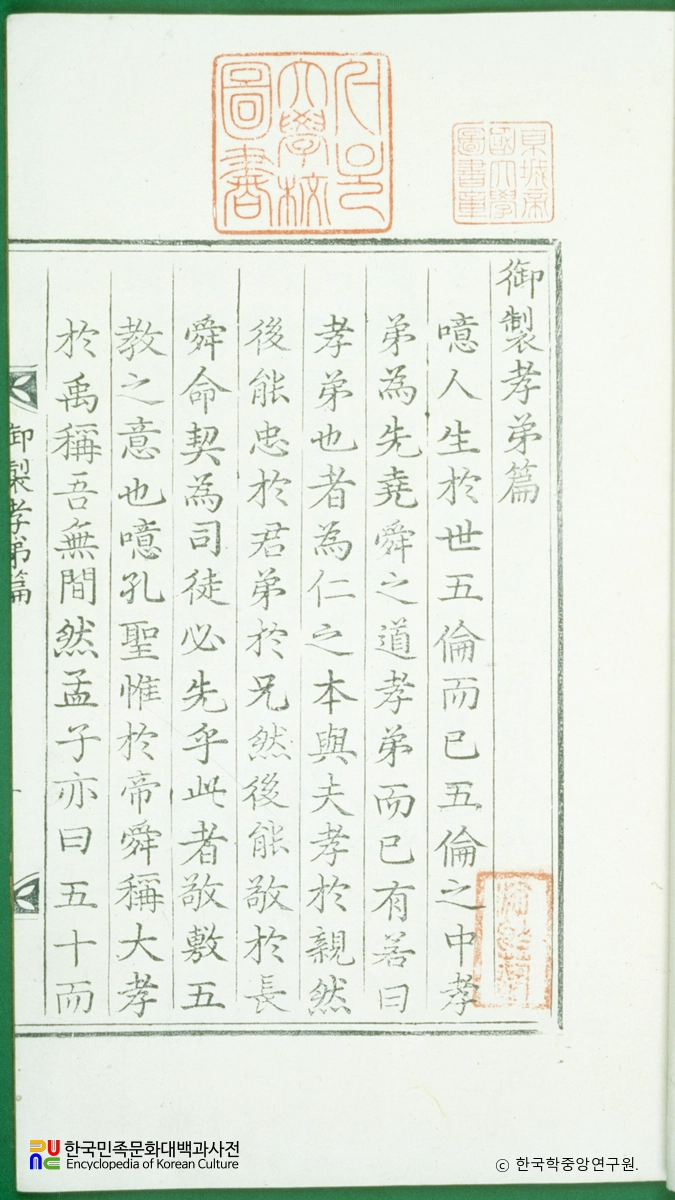 御製孝弟篇
噫人生於世五倫而已五倫之中孝
弟為先堯舜之道孝弟而已有若曰
孝弟也者為仁之本與夫孝於親然
後能忠於君弟於兄然後能敬於長
舜命契為司徒必先乎此者敬敷五
教之意也噫孔聖惟於帝舜稱大孝
於禹稱吾無間然孟子亦曰五十而
御製孝弟篇
大學校
圖書
京城帝
國大學
圖書章
한국민족문화대백과사전
Encyclopedia of Korean Culture
© 한국학중앙연구원.